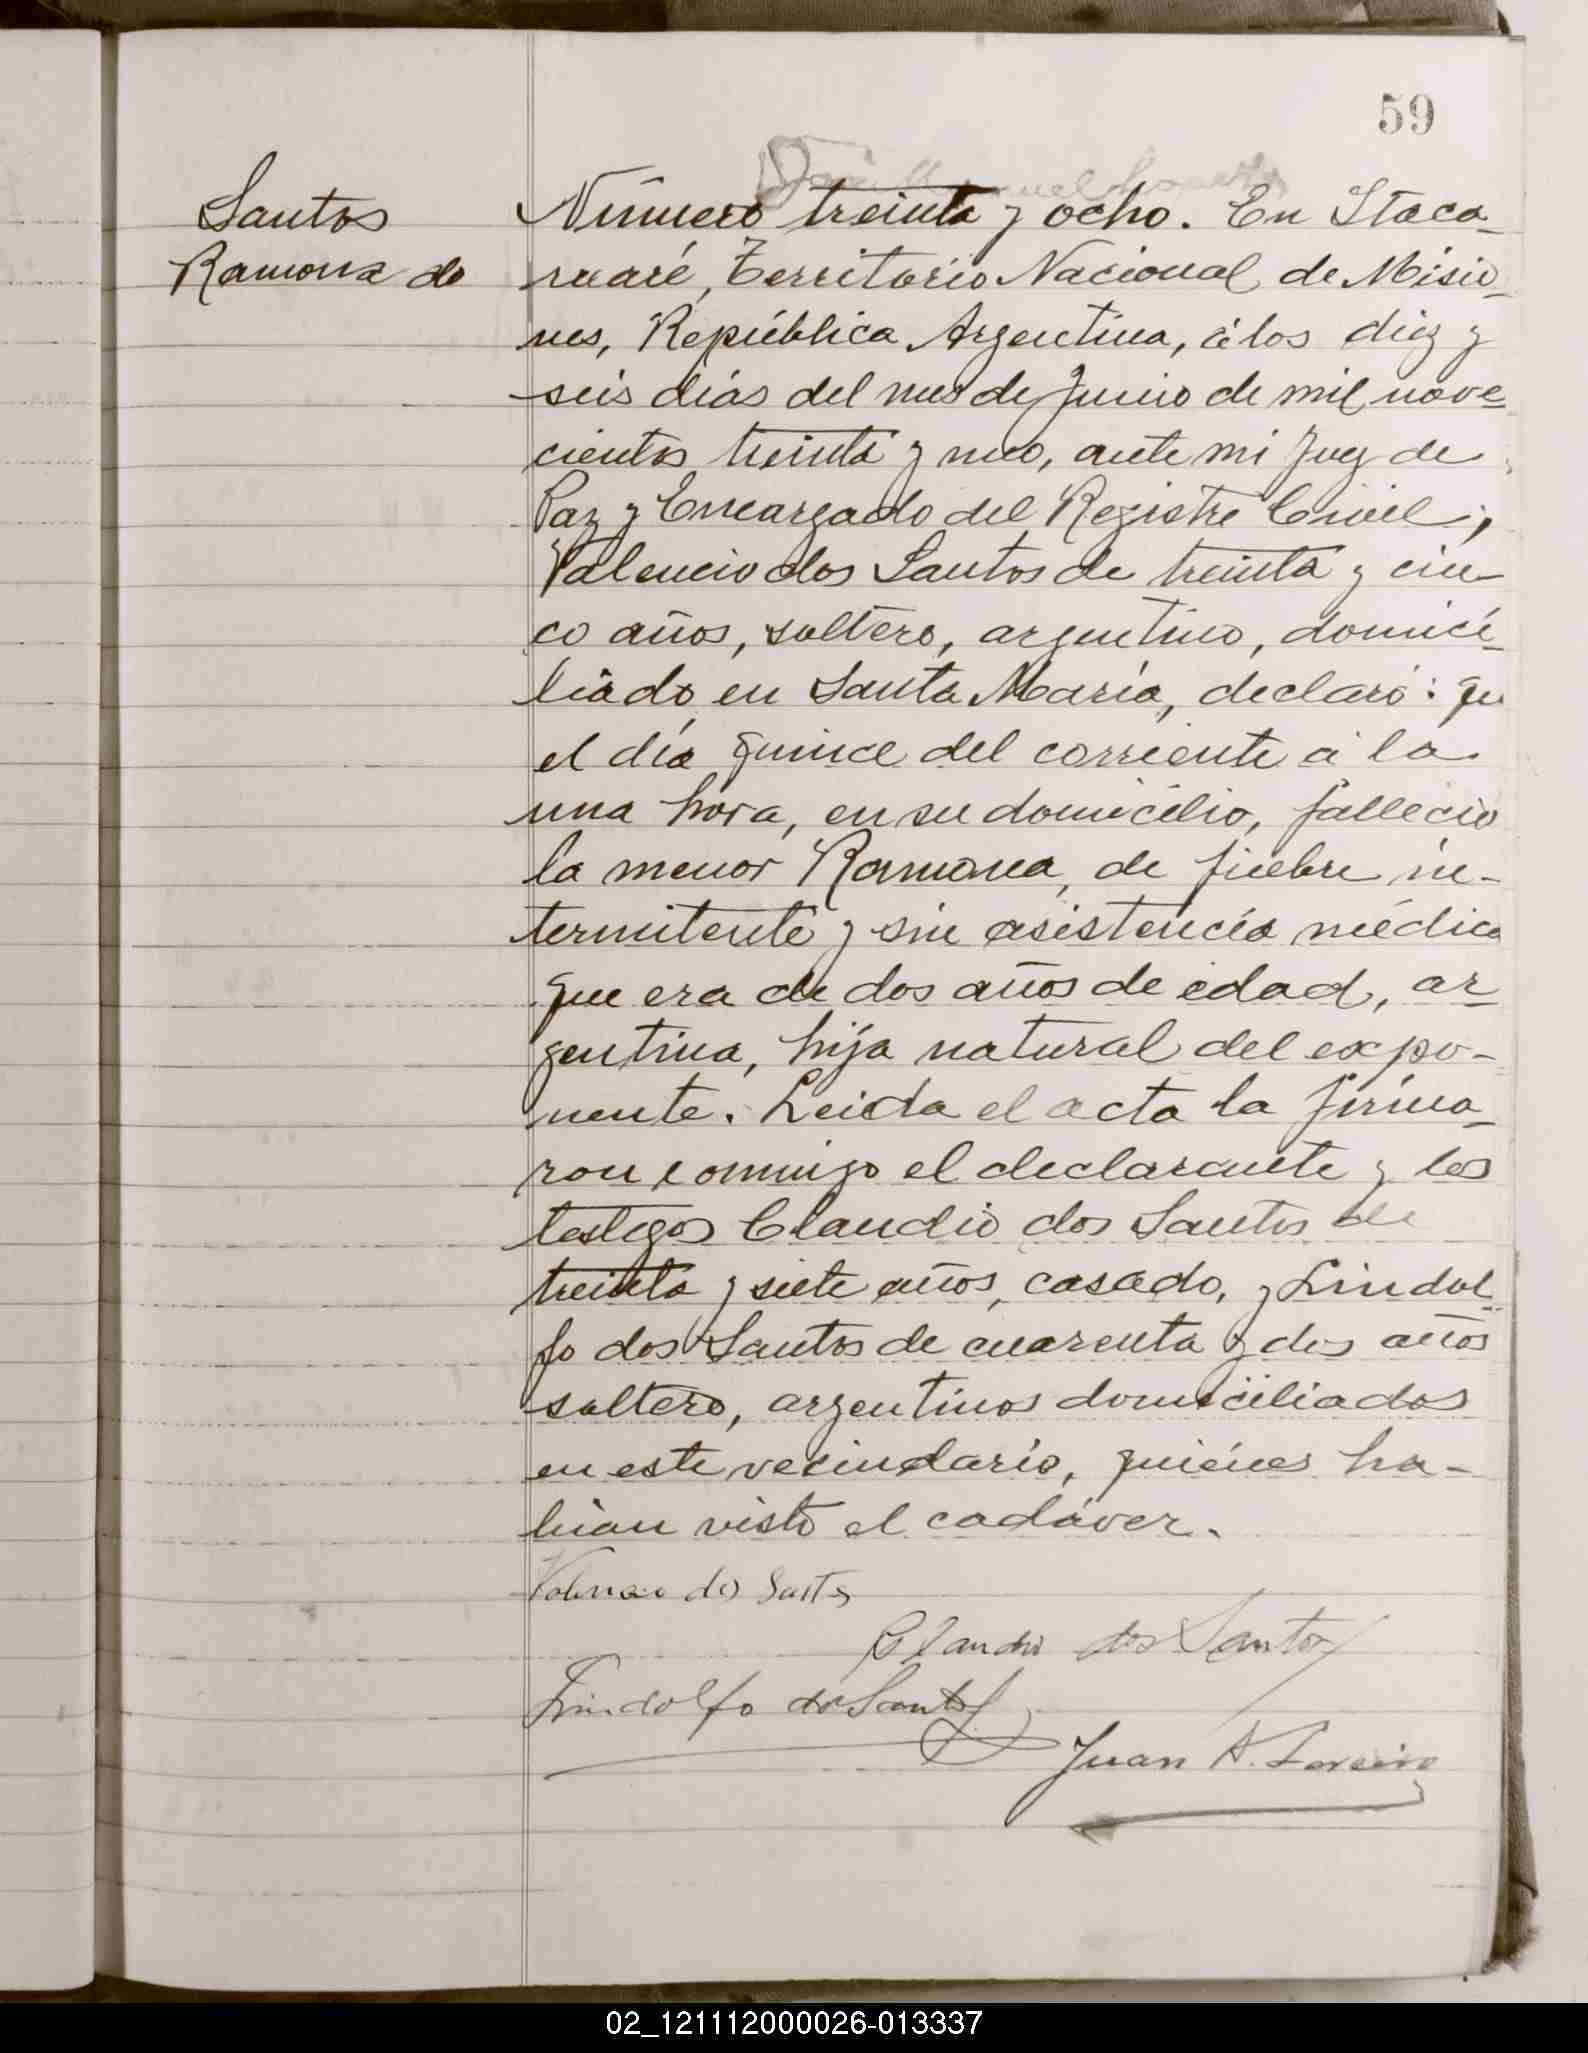 59
Santos
Ramona do
Número treinta y ocho. En Itaca-
ruaré, Territorio Nacional de Misio-
nes, República Argentina, á los diez y
seis días del mes de Junio de mil nove-
cientos treinta y uno, ante mi Juez de
Paz y Encargado del Registro Civil,
Valencio dos Santos de treinta y cin-
co años, soltero, argentino, domici-
liado en Santa María, declaró: que
el día quince del corriente á la
una hora, en su domicilio, falleció
la menor Ramona, de fiebre in-
termitente y sin asistencia médica
que era de dos años de edad, ar-
gentina, hija natural del expo-
nente. Leida el acta la firma-
ron conmigo el declarante y los
testigos Claudio dos Santos de
treinta y siete años, casado, y Lindol-
fo dos Santos de cuarenta y dos años
soltero, argentinos domiciliados
en este vecindario, quiénes ha-
bian visto el cadáver.
Valencio dos Santos
Claudio dos Santos
Lindolfo do Santos
Juan A.
02_121112000026-013337